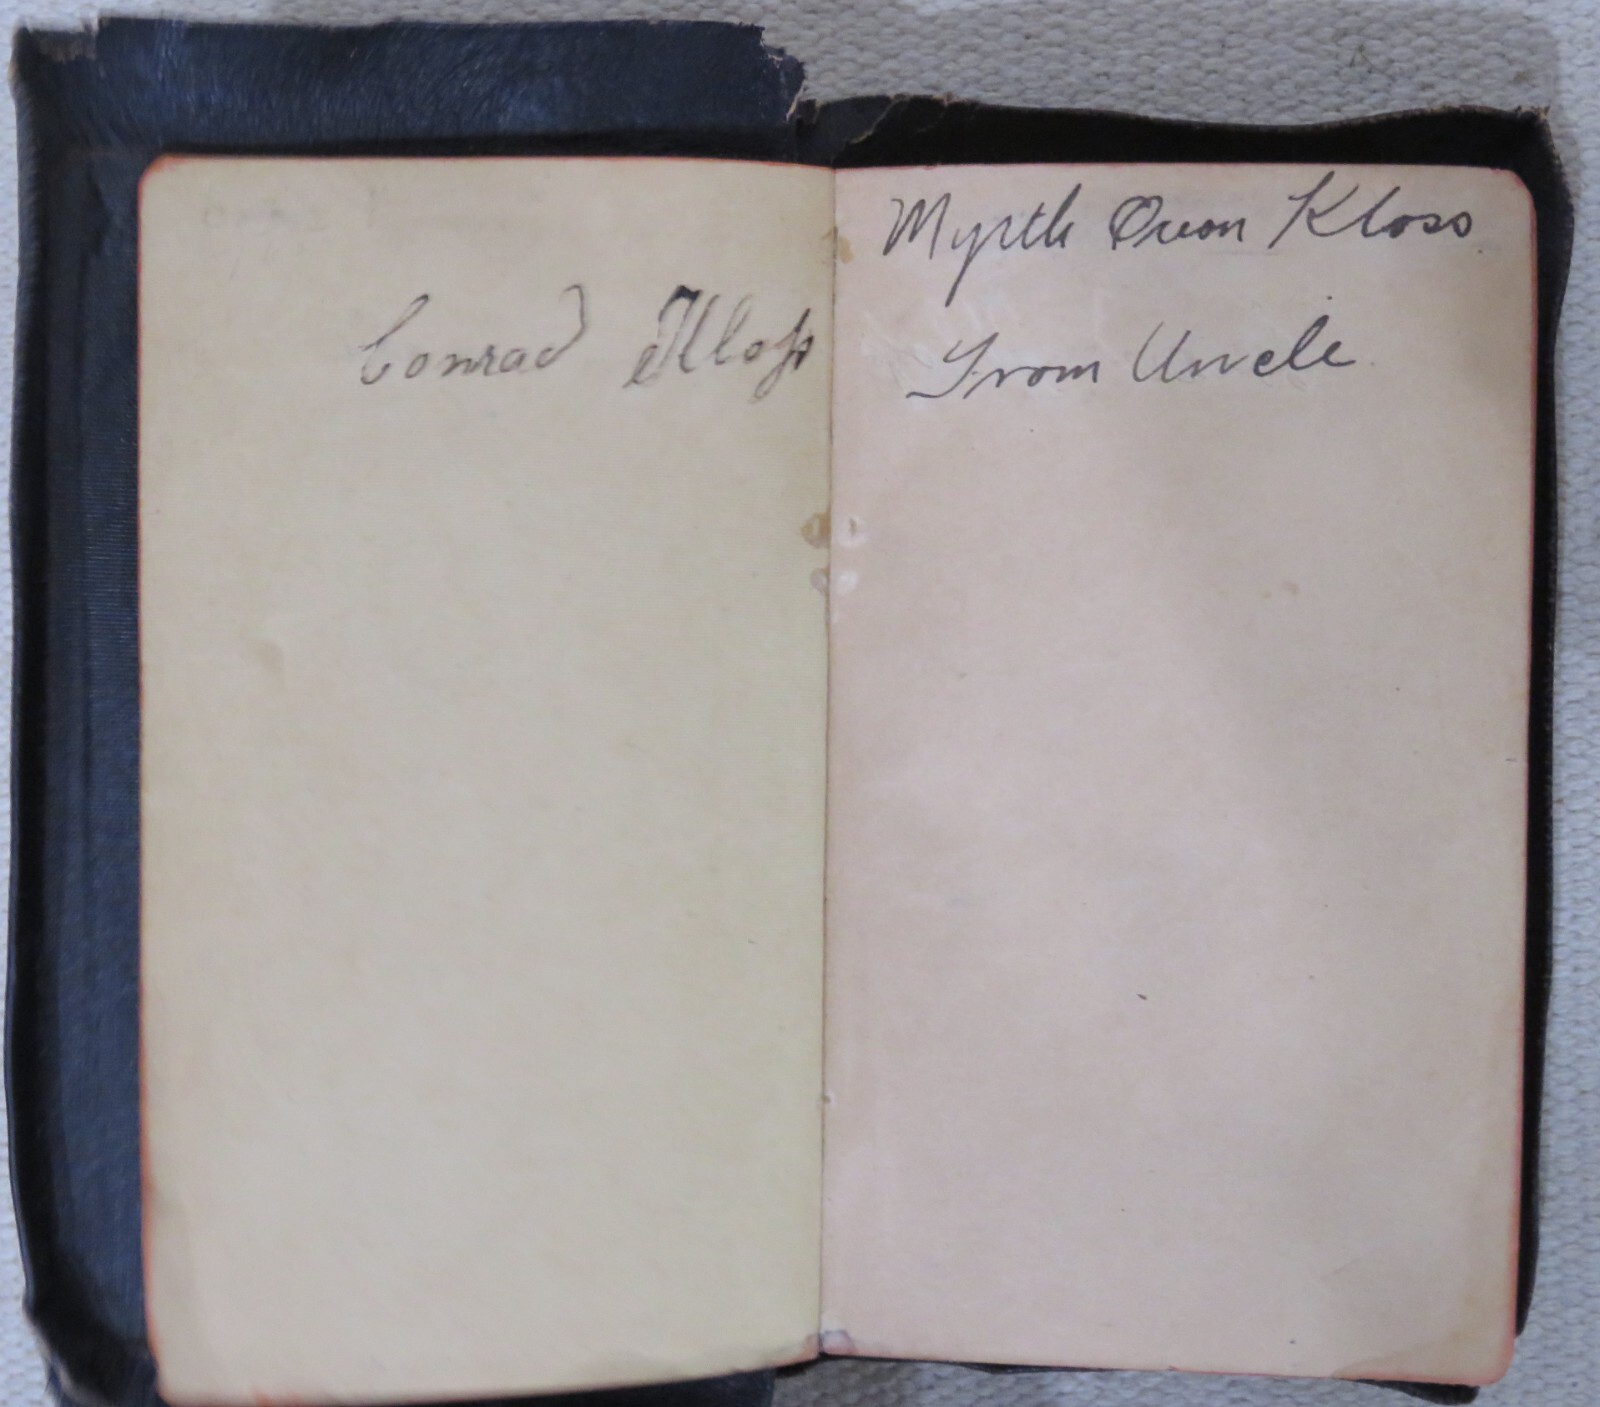 Conrad Kloſs
Myrtle Kloss
From Uncle